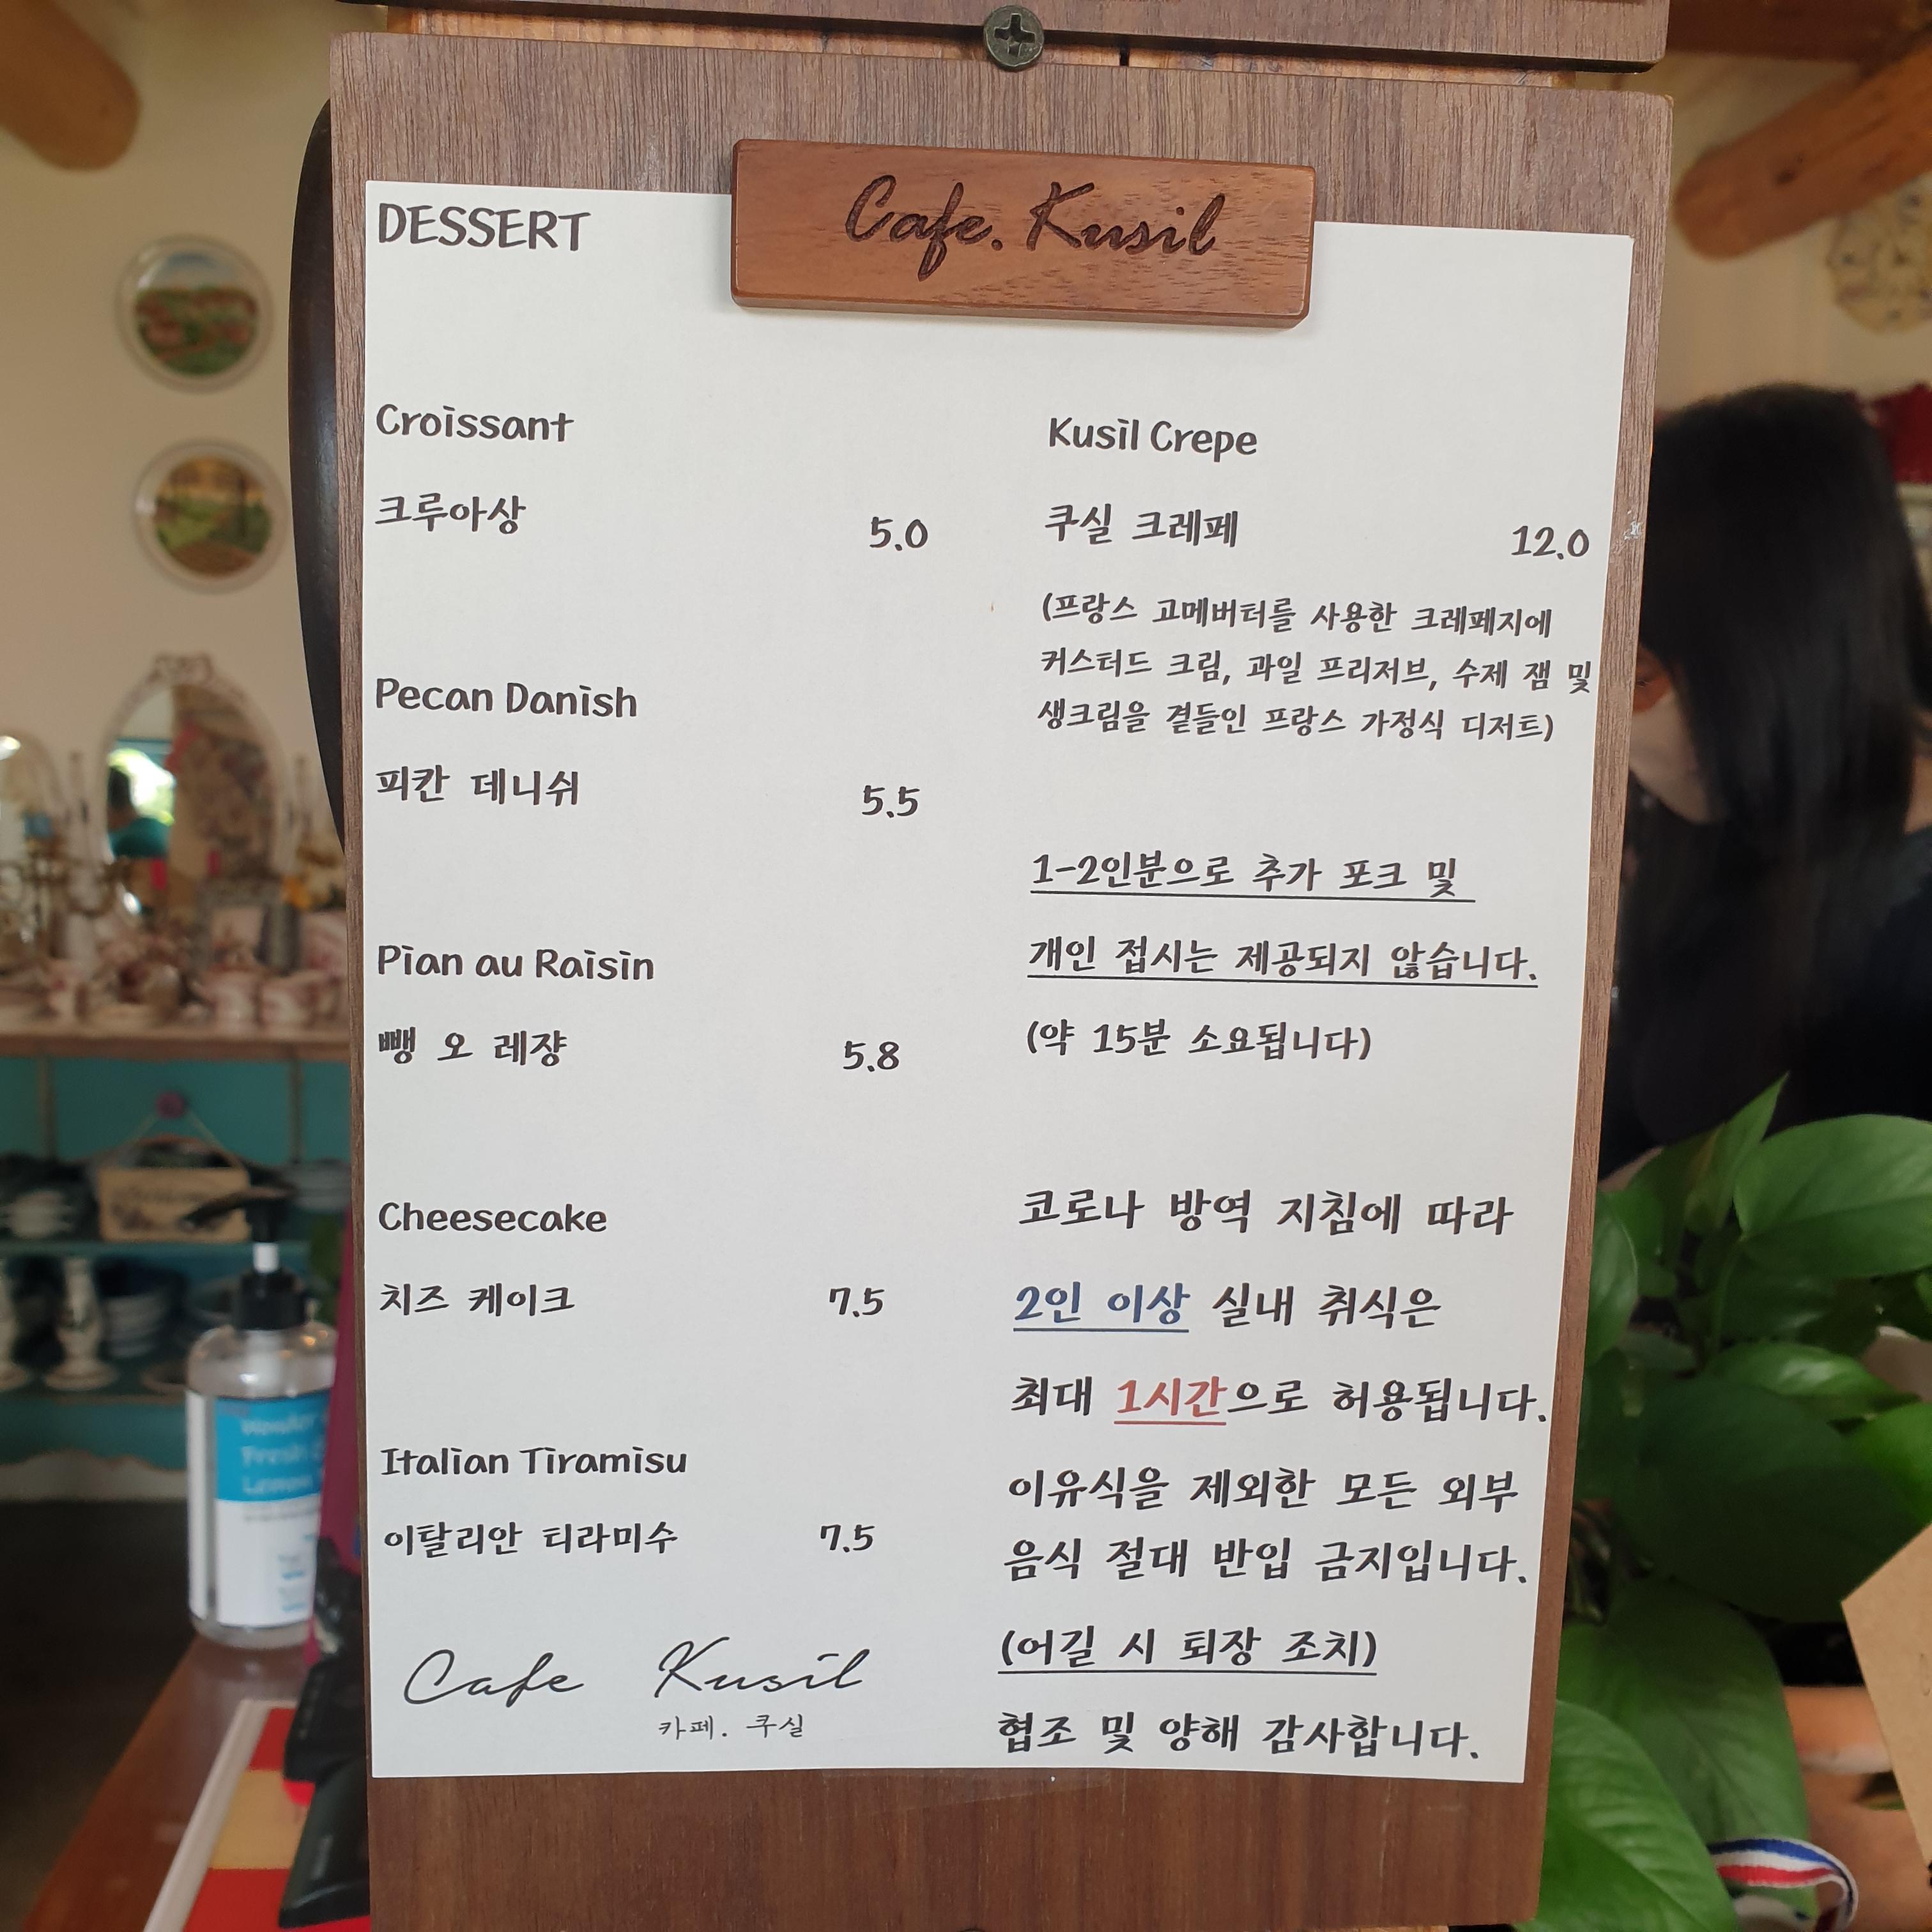 Cafe. Kusil
DESSERT
Croissant
크루아상 5.0
Pecan Danish
피칸 데니쉬 5.5
Pian au Raisin
뺑 오 레쟝 5.8
Cheesecake
치즈 케이크 7.5
Italian Tiramisu
이탈리안 티라미수 7.5
Cafe Kusil
카페. 쿠실
Kusil Crepe
쿠실 크레페 12.0
(프랑스 고메버터를 사용한 크레페지에
커스터드 크림, 과일 프리저브, 수제 잼 및
생크림을 곁들인 프랑스 가정식 디저트)
1-2인분으로 추가 포크 및
개인 접시는 제공되지 않습니다.
(약 15분 소요됩니다)
코로나 방역 지침에 따라
2인 이상 실내 취식은
최대 1시간으로 허용됩니다.
이유식을 제외한 모든 외부
음식 절대 반입 금지입니다.
(어길 시 퇴장 조치)
협조 및 양해 감사합니다.
Fresh
Lemon